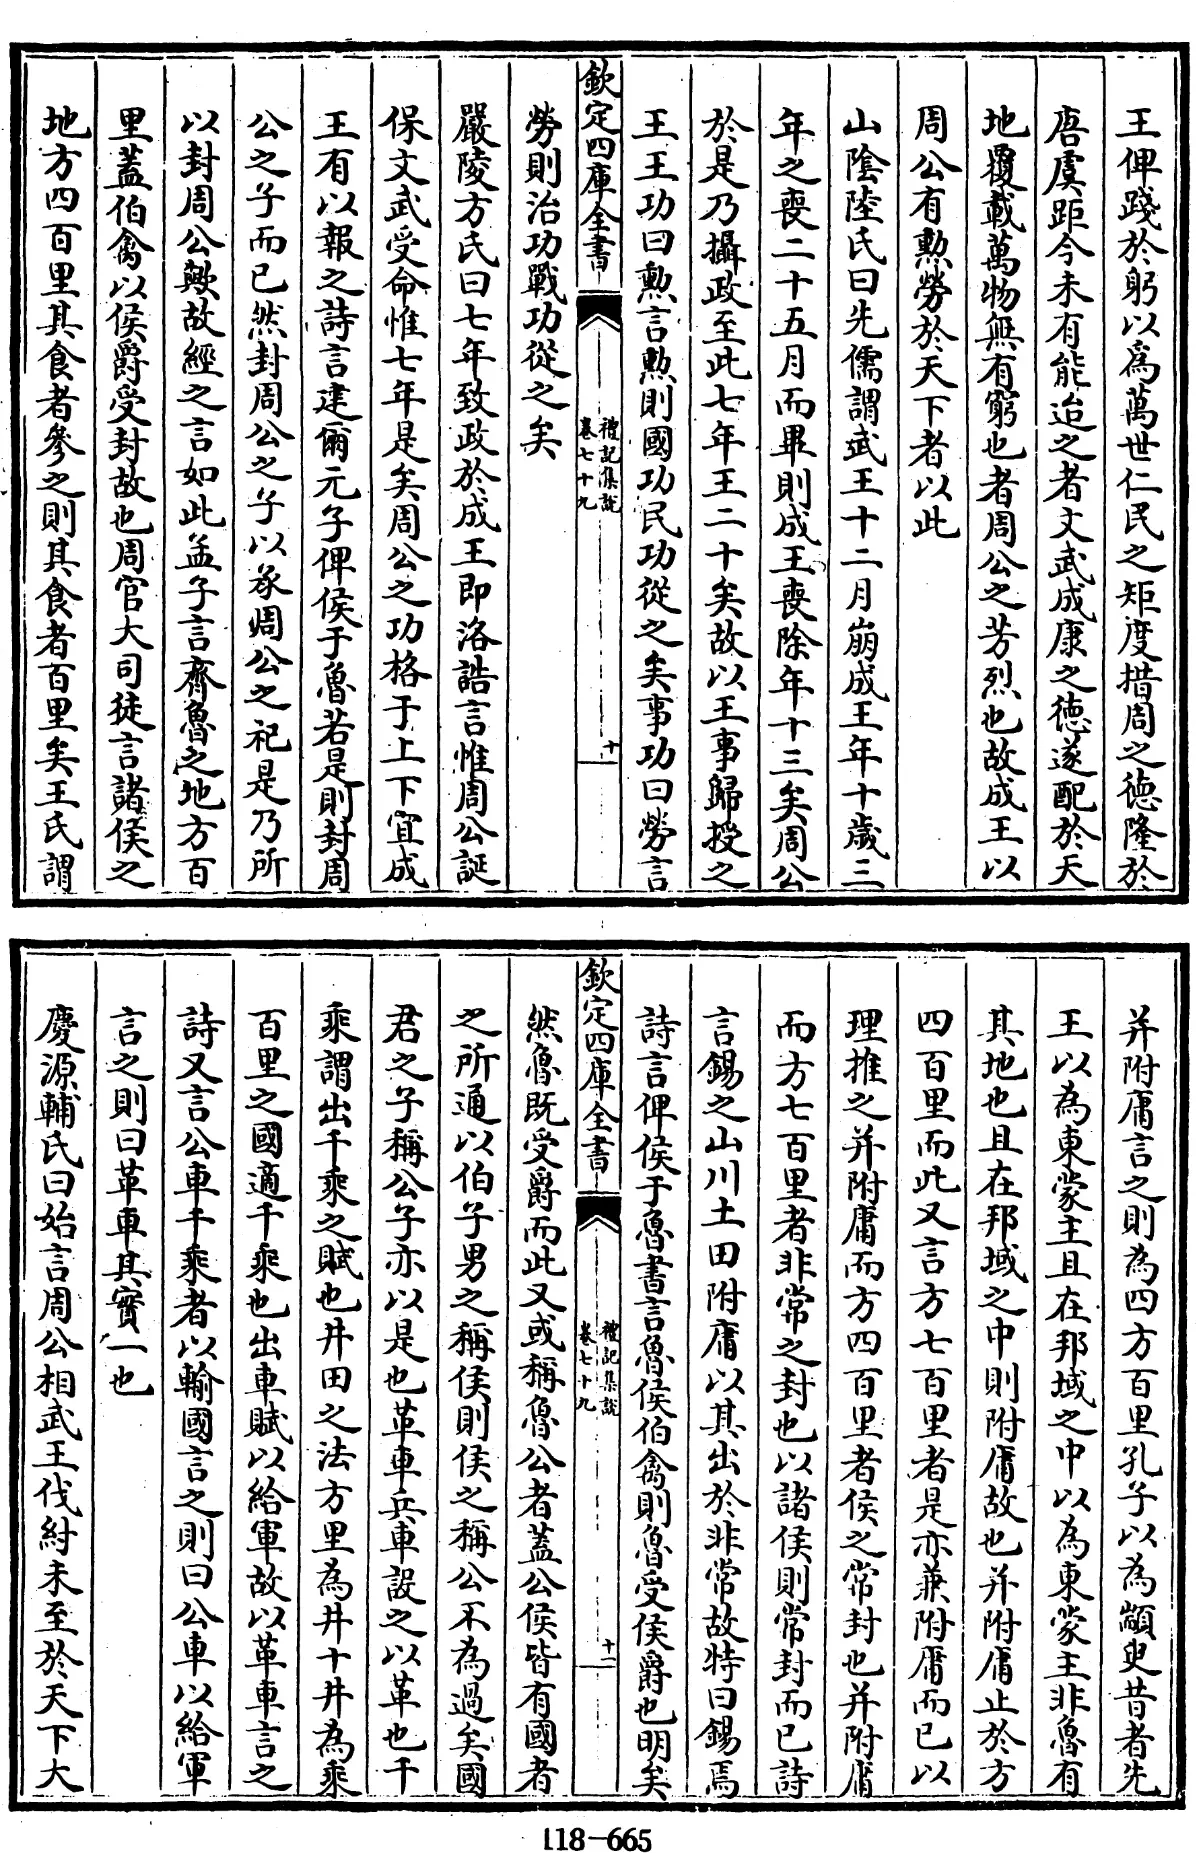 王俾踐於躬以爲萬世仁民之矩度措周之德隆於
唐虞距今未有能迨之者文武成康之德遂配於天
地覆載萬物無有窮也者周公之芳烈也故成王以
周公有勲勞於天下者以此
山隂陸氏曰先儒謂武王十二月崩成王年十歲三
年之喪二十五月而畢則成王喪除年十三矣周公
於是乃攝政至此七年王二十矣故以王事歸授之
王王功曰勲言勲則國功民功從之矣事功曰勞言
欽定四庫全書
禮記集說
卷七十九
十
勞則治功戰功從之矣
嚴陵方氏曰七年致政於成王即洛誥言惟周公誕
保文武受命惟七年是矣周公之功格于上下宜成
王有以報之詩言建爾元子俾侯于魯若是則封周
公之子而已然封周公之子以承周公之祀是乃所
以封周公歟故經之言如此孟子言齊魯之地方百
里蓋伯禽以侯爵受封故也周官大司徒言諸侯之
地方四百里其食者參之則其食者百里矣王氏謂
并附庸言之則為四方百里孔子以為顓臾昔者先
王以為東蒙主且在邦域之中以為東蒙主非魯有
其地也且在邦域之中則附庸故也并附庸止於方
四百里而此又言方七百里者是亦兼附庸而已以
理推之并附庸而方四百里者侯之常封也并附庸
而方七百里者非常之封也以諸侯則常封而已詩
言錫之山川土田附庸以其出於非常故特曰錫焉
詩言俾侯于魯書言魯侯伯禽則魯受侯爵也明矣
欽定四庫全書
禮記集說
卷七十九
十一
然魯既受爵而此又或稱魯公者蓋公侯皆有國者
之所通以伯子男之稱侯則侯之稱公不為過矣國
君之子稱公子亦以是也革車兵車設之以革也千
乘謂出千乘之賦也井田之法方里為井十井為乘
百里之國適千乘也出車賦以給軍故以革車言之
詩又言公車千乘者以輸國言之則曰公車以給軍
言之則曰革車其實一也
慶源輔氏曰始言周公相武王伐紂未至於天下大
118-665